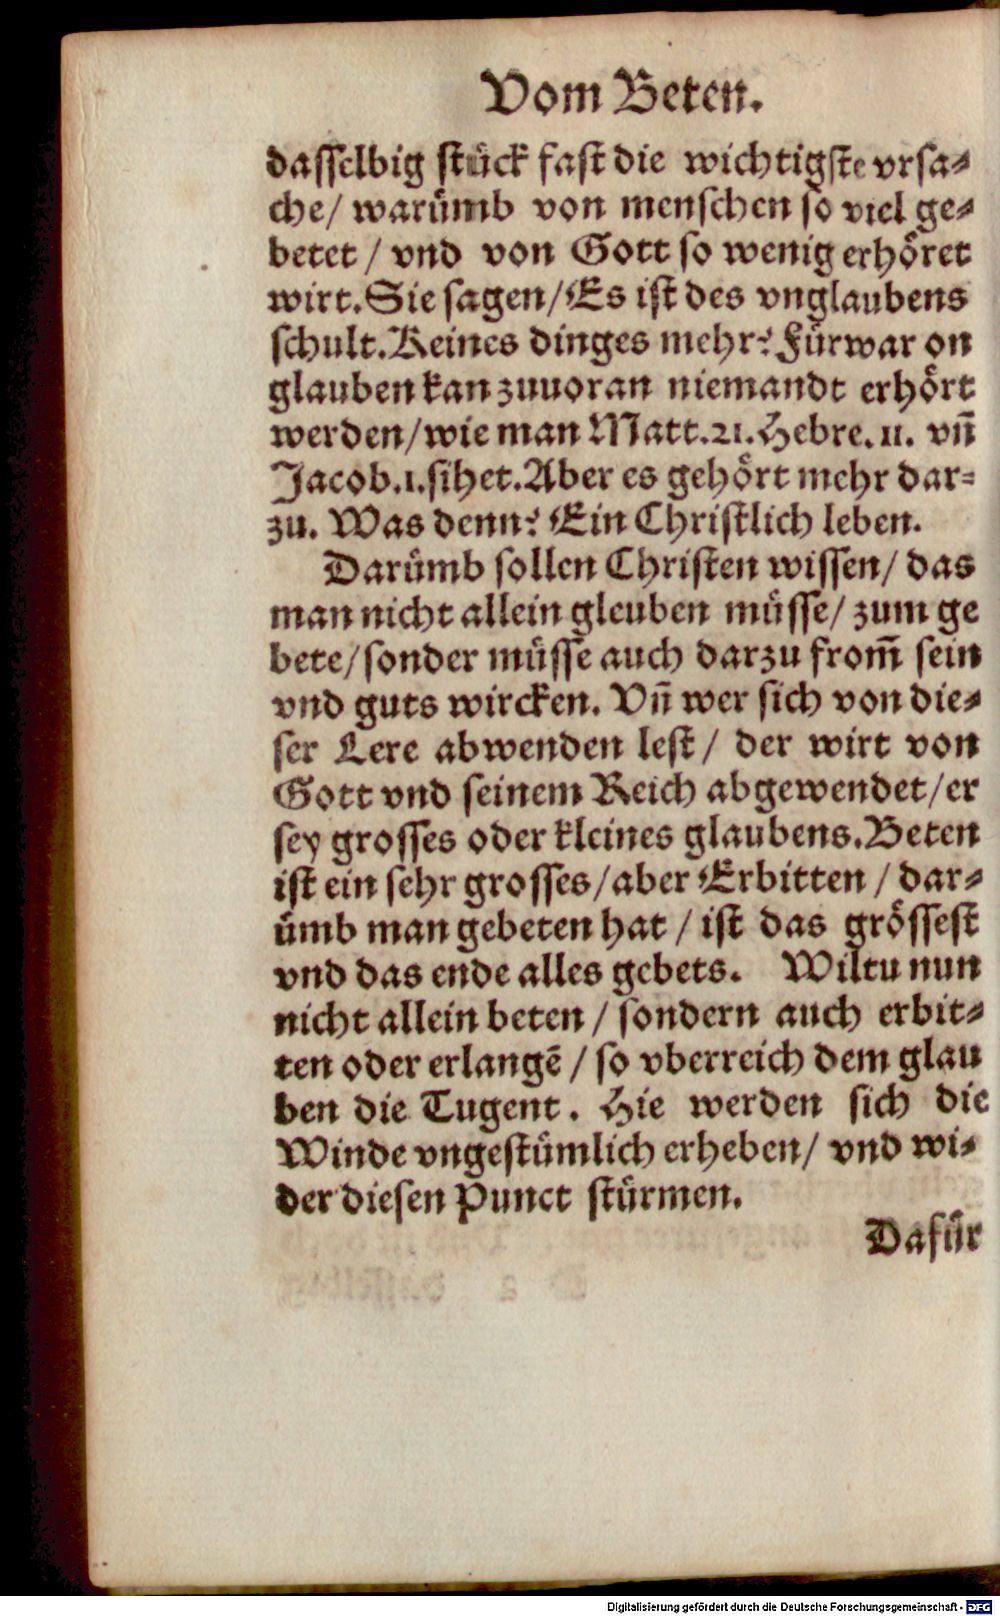 Vom Beten.
dasselbig stück fast die wichtigste vrsa⸗
che/ warümb von menschen so viel ge⸗
betet / vnd von Gott so wenig erhöret
wirt. Sie sagen/ Es ist des vnglaubens
schult. Keines dinges mehr? Fürwar on
glauben kan zuuoran niemandt erhört
werden/ wie man Matt. 21. Hebre. 11. vñ
Jacob. 1. sihet. Aber es gehört mehr dar⸗
zu. Was denn? Ein Christlich leben.
Darümb sollen Christen wissen/ das
man nicht allein gleuben müsse/ zum ge
bete/ sonder müsse auch darzu from̃ sein
vnd guts wircken. Vñ wer sich von die⸗
ser Lere abwenden lest / der wirt von
Gott vnd seinem Reich abgewendet/ er
sey grosses oder kleines glaubens. Beten
ist ein sehr grosses/ aber Erbitten / dar⸗
ümb man gebeten hat / ist das grössest
vnd das ende alles gebets. Wiltu nun
nicht allein beten / sondern auch erbit⸗
ten oder erlangẽ / so vberreich dem glau
ben die Tugent. Hie werden sich die
Winde vngestümlich erheben/ vnd wi⸗
der diesen Punct stürmen.
Dafür
Digitalisierung gefördert durch die Deutsche Forschungsgemeinschaft - DFG